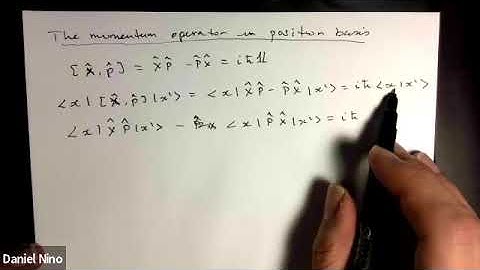 The momentum operator in position basis
[x̂, p̂] = x̂p̂ - p̂x̂ = iħ𝟙
<x| [x̂, p̂] |x'> = <x| x̂p̂ - p̂x̂ |x'> = iħ <x|x'>
<x| x̂p̂ |x'> - <x| p̂x̂ |x'> = iħ
Daniel Nino